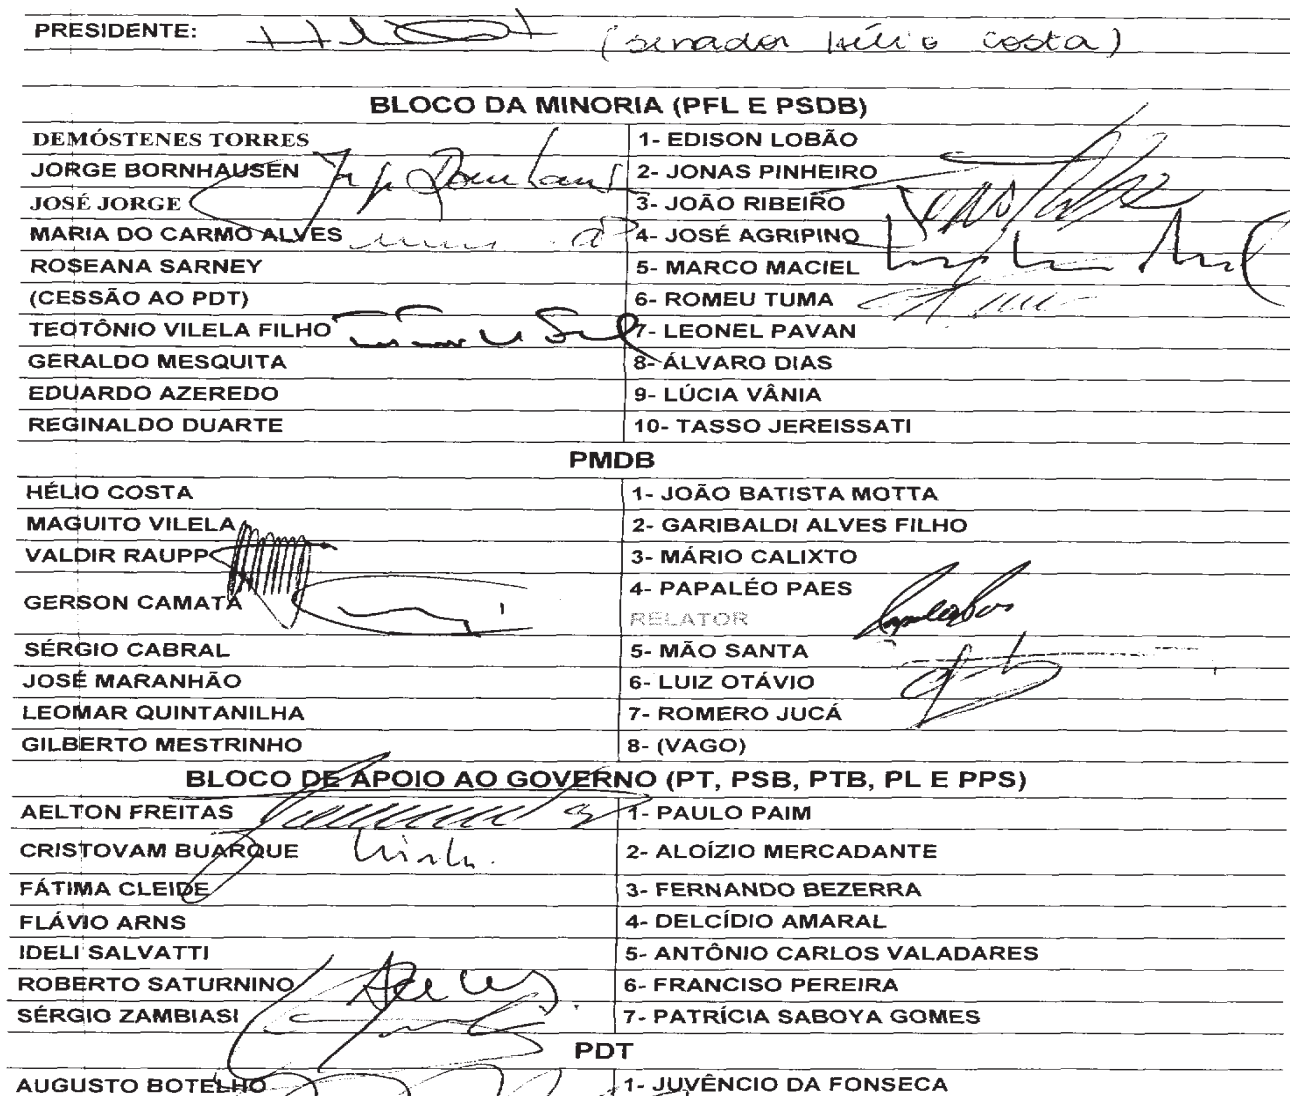 PRESIDENTE: (senador Hélio Costa)
BLOCO DA MINORIA (PFL E PSDB)
DEMÓSTENES TORRES 1- EDISON LOBÃO
JORGE BORNHAUSEN 2- JONAS PINHEIRO
JOSÉ JORGE 3- JOÃO RIBEIRO
MARIA DO CARMO ALVES 4- JOSÉ AGRIPINO
ROSEANA SARNEY 5- MARCO MACIEL
(CESSÃO AO PDT) 6- ROMEU TUMA
TEOTÔNIO VILELA FILHO 7- LEONEL PAVAN
GERALDO MESQUITA 8- ÁLVARO DIAS
EDUARDO AZEREDO 9- LÚCIA VÂNIA
REGINALDO DUARTE 10- TASSO JEREISSATI
PMDB
HÉLIO COSTA 1- JOÃO BATISTA MOTTA
MAGUITO VILELA 2- GARIBALDI ALVES FILHO
VALDIR RAUPP 3- MÁRIO CALIXTO
GERSON CAMATA 4- PAPALÉO PAES
RELATOR
SÉRGIO CABRAL 5- MÃO SANTA
JOSÉ MARANHÃO 6- LUIZ OTÁVIO
LEOMAR QUINTANILHA 7- ROMERO JUCÁ
GILBERTO MESTRINHO 8- (VAGO)
BLOCO DE APOIO AO GOVERNO (PT, PSB, PTB, PL E PPS)
AELTON FREITAS 1- PAULO PAIM
CRISTOVAM BUARQUE 2- ALOÍZIO MERCADANTE
FÁTIMA CLEIDE 3- FERNANDO BEZERRA
FLÁVIO ARNS 4- DELCÍDIO AMARAL
IDELI SALVATTI 5- ANTÔNIO CARLOS VALADARES
ROBERTO SATURNINO 6- FRANCISO PEREIRA
SÉRGIO ZAMBIASI 7- PATRÍCIA SABOYA GOMES
PDT
AUGUSTO BOTELHO 1- JUVÊNCIO DA FONSECA